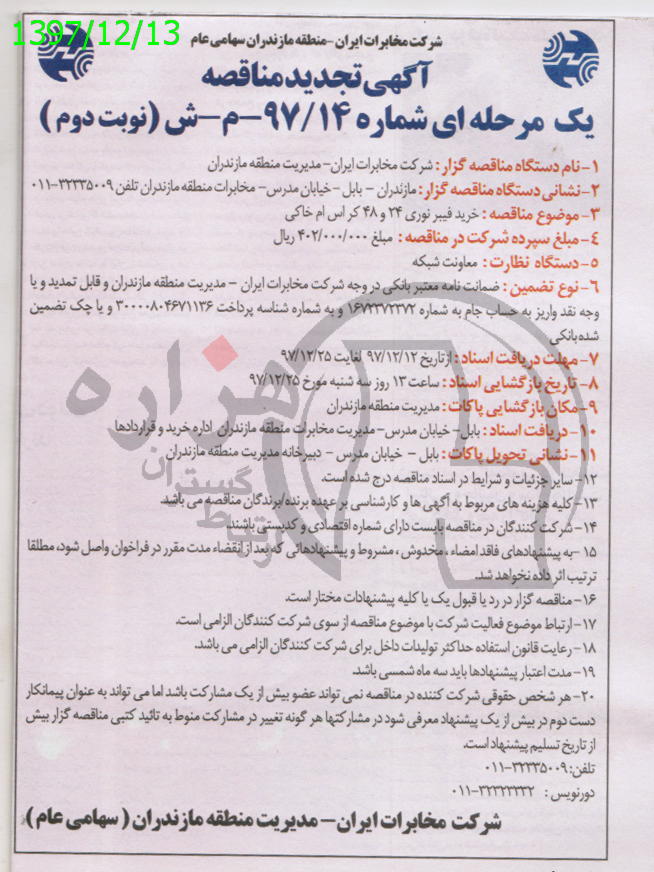 1397/12/13
شرکت مخابرات ایران-منطقه مازندران سهامی عام
آگهی تجدید مناقصه
یک مرحله ای شماره ۹۷/۱۴-م-ش (نوبت دوم)
۱-نام دستگاه مناقصه گزار: شرکت مخابرات ایران-مدیریت منطقه مازندران
۲-نشانی دستگاه مناقصه گزار: مازندران - بابل-خیابان مدرس- مخابرات منطقه مازندران تلفن ۳۲۳۳۵۰۰۹-۰۱۱
۳-موضوع مناقصه: خرید فیبر نوری ۲۴ و ۴۸ کر اس ام خاکی
٤-مبلغ سپرده شرکت در مناقصه: مبلغ ۴۰۲/۰۰۰/۰۰۰ ریال
۵-دستگاه نظارت: معاونت شبکه
۶-نوع تضمین: ضمانت نامه معتبر بانکی در وجه شرکت مخابرات ایران - مدیریت منطقه مازندران و قابل تمدید و یا
وجه نقد واریز به حساب جام به شماره ۱۶۷۲۳۷۲۳۷۲ و به شماره شناسه پرداخت ۳۰۰۰۰۸۰۴۶۷۱۱۳۶ و یا چک تضمین
شده بانکی
۷-مهلت دریافت اسناد: ازتاریخ ۹۷/۱۲/۱۲ لغایت ۹۷/۱۲/۲۵
۸-تاریخ بازگشایی اسناد: ساعت ۱۳ روز سه شنبه مورخ ۹۷/۱۲/۲۵
۹-مکان بازگشایی پاکات: مدیریت منطقه مازندران
۱۰-دریافت اسناد: بابل- خیابان مدرس-مدیریت مخابرات منطقه مازندران اداره خرید و قراردادها
۱۱-نشانی تحویل پاکات: بابل - خیابان مدرس - دبیرخانه مدیریت منطقه مازندران
۱۲-سایر جزئیات و شرایط در اسناد مناقصه درج شده است.
۱۳-کلیه هزینه های مربوط به آگهی ها و کارشناسی بر عهده برنده/برندگان مناقصه می باشد.
۱۴-شرکت کنندگان در مناقصه بایست دارای شماره اقتصادی و کدپستی باشند.
۱۵-به پیشنهادهای فاقد امضاء، مخدوش، مشروط و پیشنهادهائی که بعد از انقضاء مدت مقرر در فراخوان واصل شود، مطلقا
ترتیب اثر داده نخواهد شد.
۱۶-مناقصه گزار در رد یا قبول یک یا کلیه پیشنهادات مختار است.
۱۷-ارتباط موضوع فعالیت شرکت با موضوع مناقصه از سوی شرکت کنندگان الزامی است.
۱۸-رعایت قانون استفاده حداکثر تولیدات داخل برای شرکت کنندگان الزامی می باشد.
۱۹-مدت اعتبار پیشنهادها باید سه ماه شمسی باشد.
۲۰-هر شخص حقوقی شرکت کننده در مناقصه نمی تواند عضو بیش از یک مشارکت باشد اما می تواند به عنوان پیمانکار
دست دوم در بیش از یک پیشنهاد معرفی شود در مشارکتها هر گونه تغییر در مشارکت منوط به تائید کتبی مناقصه گزار بیش
از تاریخ تسلیم پیشنهاد است.
تلفن: ۳۲۳۳۵۰۰۹-۰۱۱
دورنویس: ۳۲۳۲۲۳۳۲-۰۱۱
شرکت مخابرات ایران-مدیریت منطقه مازندران (سهامی عام)
هزاره
گستران
ارتباط